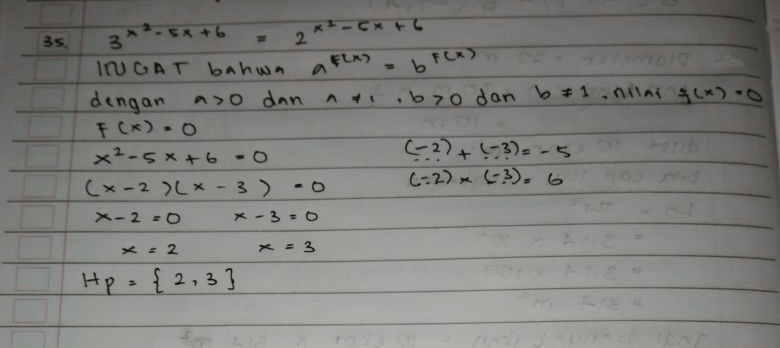 35. 3^(x²-5x+6) = 2^(x²-5x+6)
INGAT bahwa a^F(x) = b^F(x)
dengan a>0 dan a≠1, b>0 dan b≠1, nilai f(x)=0
F(x)=0
x²-5x+6=0 (-2)+(-3)=-5
(x-2)(x-3)=0 (-2)×(-3)=6
x-2=0 x-3=0
x=2 x=3
Hp = {2,3}